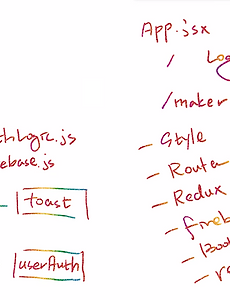 App.jsx
/
/maker
thLogic.js
ebase.js
toast
userAuth
- Style
- Router
- Redux
- fireb
- Boo